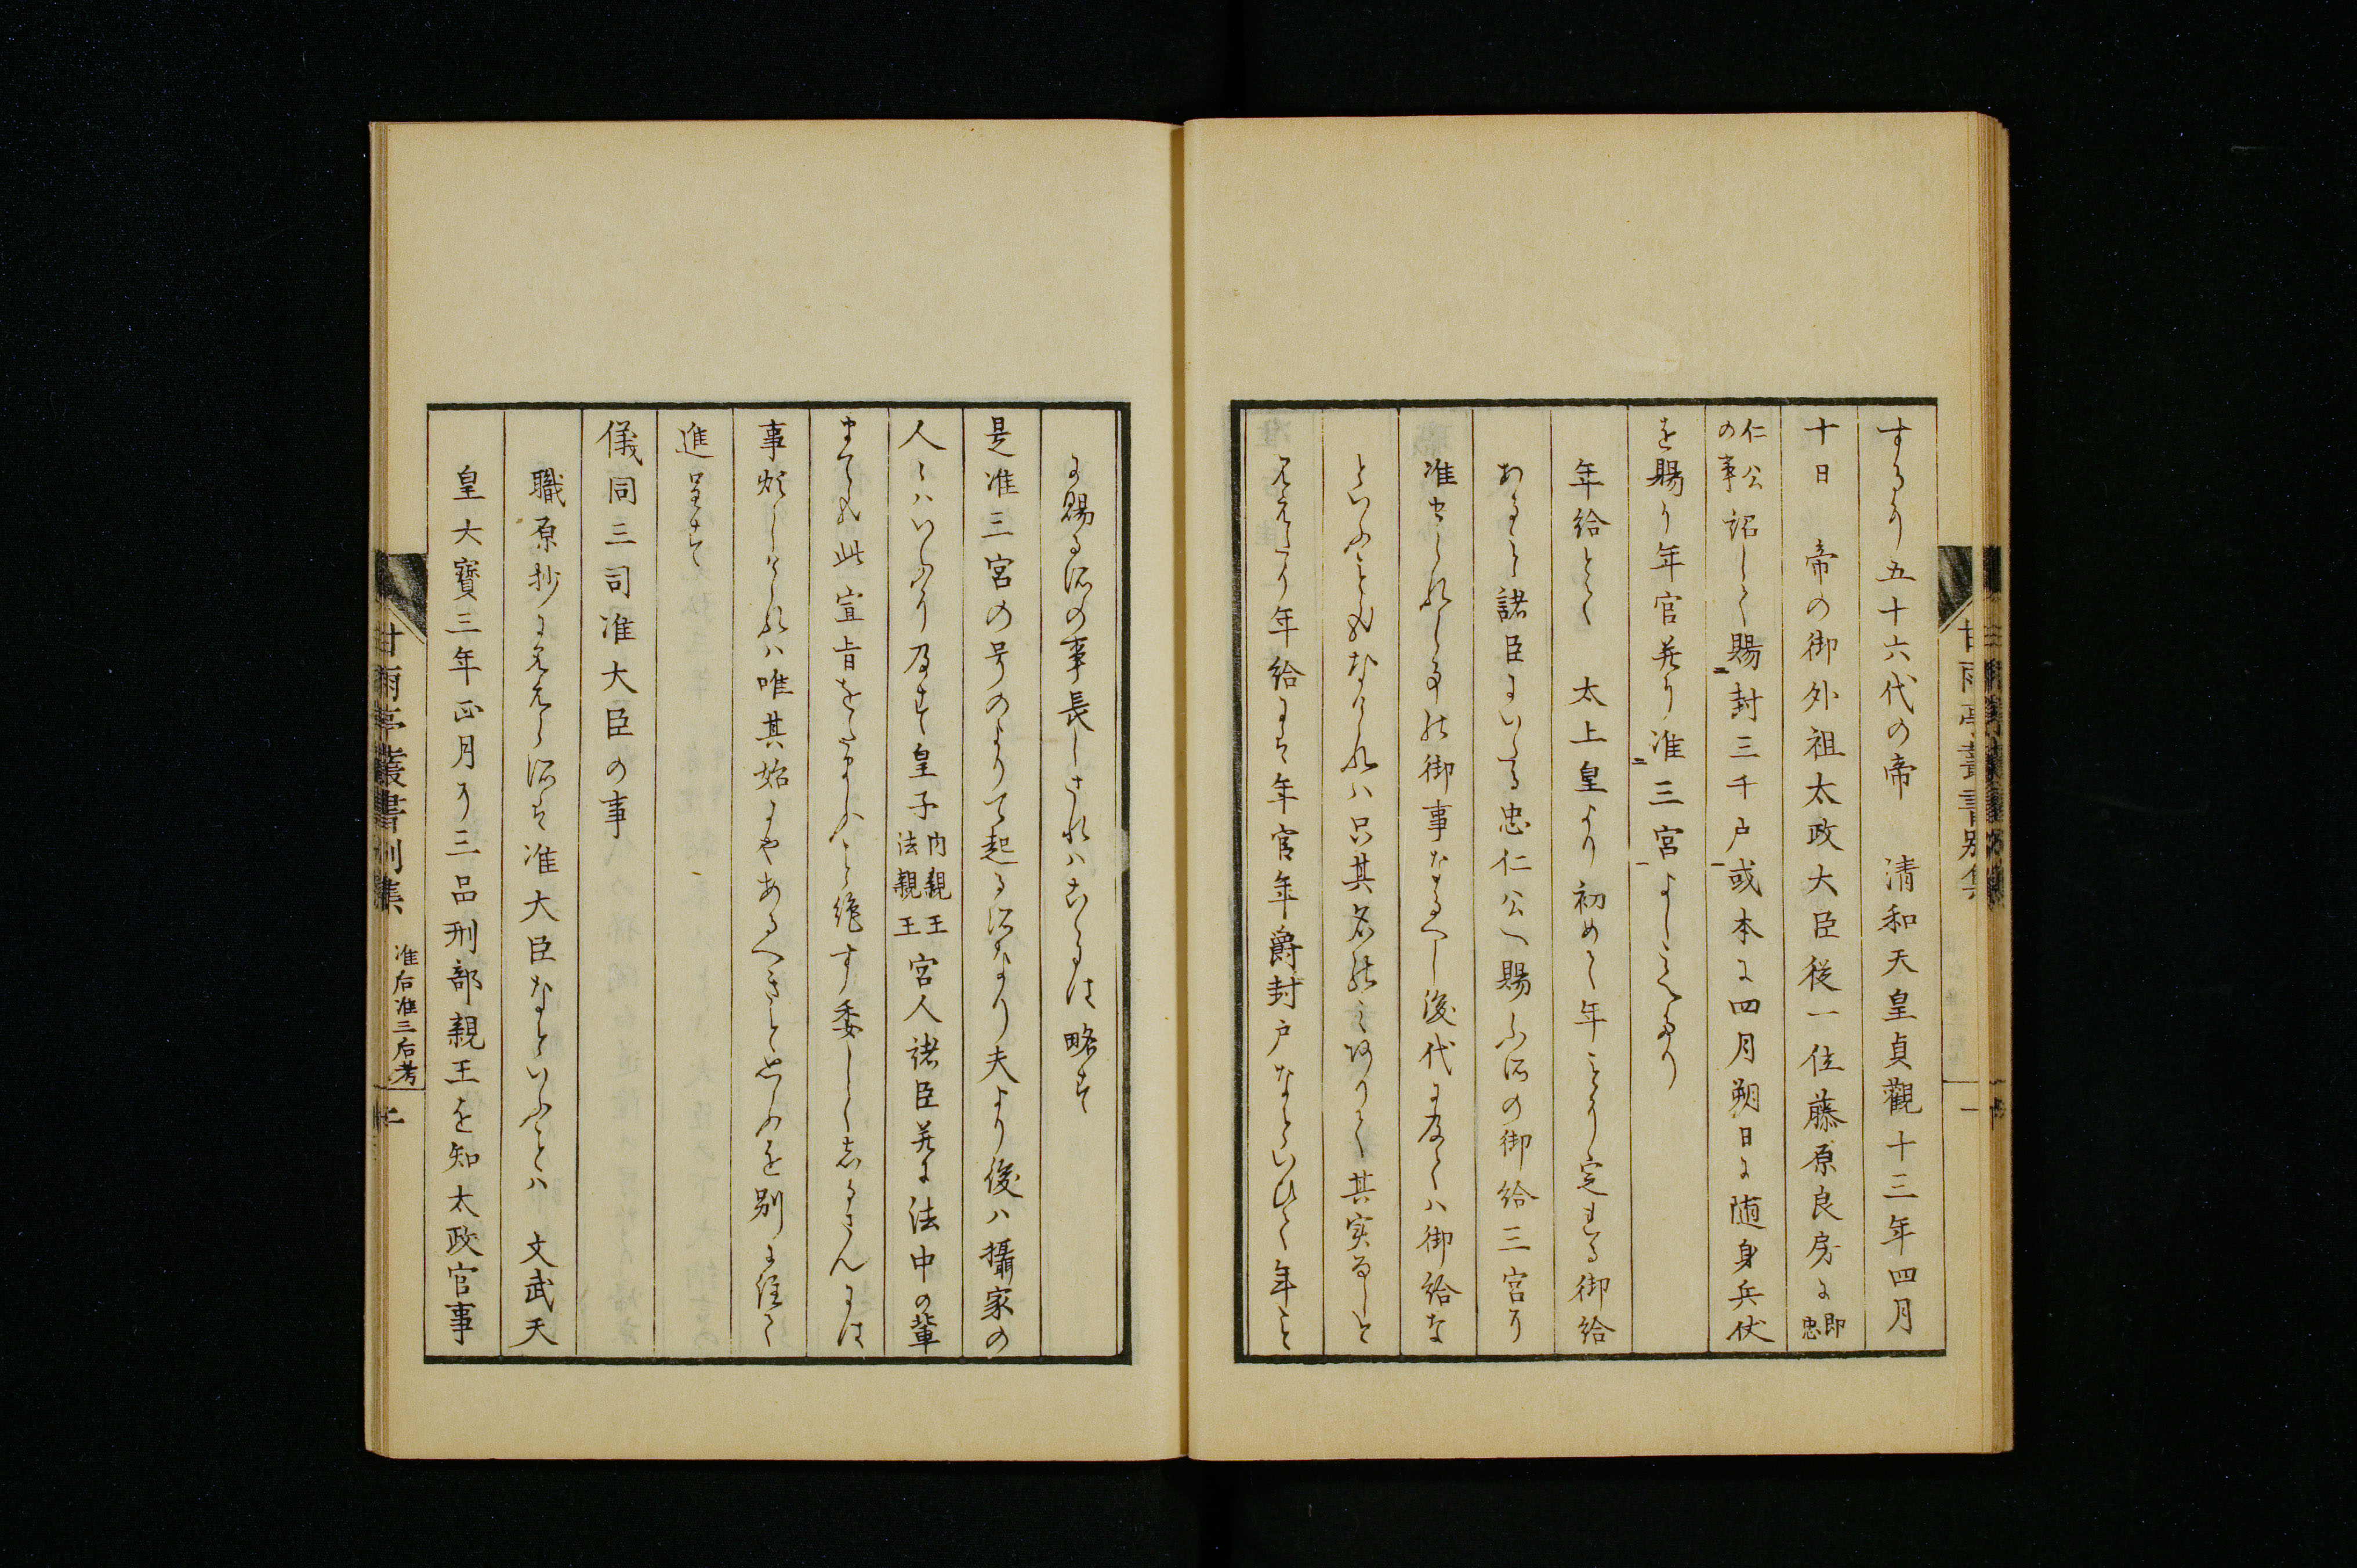 するり五十六代の帝　清和天皇貞觀十三年四月
十日　帝の御外祖太政大臣従一位藤原良房に即忠
仁公の事詔して賜封三千戸或本に四月朔日に随身兵仗
を賜り年官并り准三宮よしみへたり
年給とて　太上皇より初めて年ことに定まる御給
あること諸臣にいたる忠仁公へ賜ふ所の御給三宮に
准せられしかは御事なるへし後代に及ては御給な
といふこともなけれは只其名のみ残りて其実なしと
見えたり年給には年官年爵封戸なといひて年こと
に賜る所の事長しされはこゝには略す
是准三宮の号のよりて起る所なり夫より後ハ攝家の
人々ハいふに及す皇子内親王法親王宮人諸臣并に法中の輩
まても此宣旨をたまふこと絶す委しくしるさんには
事煩しけれハ唯其始にやあるへきと思ふを別に注して
進呈す
儀同三司准大臣の事
職原抄に見えし所は准大臣なといふことハ　文武天
皇大寶三年正月に三品刑部親王を知太政官事
甘雨亭叢書別集
准后准三后考
二